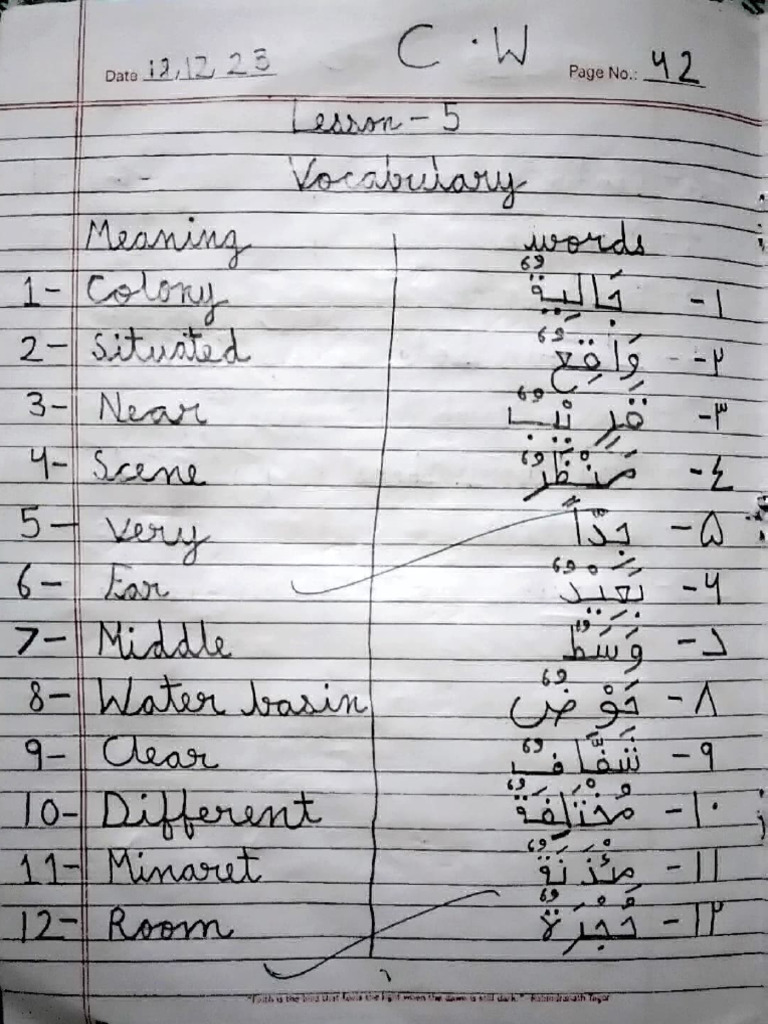 C.W
Date 12,12,23 Page No.: 42
Lesson - 5
Vocabulary
Meaning words
1- Colony جَالِيَةٌ -١
2- Situated وَاقِعٌ -٢
3- Near قَرِيْبٌ -٣
4- Scene مَنْظَرٌ -٤
5- Very جِدّاً -۵
6- Far بَعِيْدٌ -۶
7- Middle وَسَطٌ -د
8- Water basin حَوْضٌ -٨
9- Clear شَفَّافٌ -٩
10- Different مُخْتَلِفَةٌ -١٠
11- Minaret مِئْذَنَةٌ -١١
12- Room حُجْرَةٌ -١٢
"Faith is the bird that feels the light when the dawn is still dark." - Rabindranath Tagor